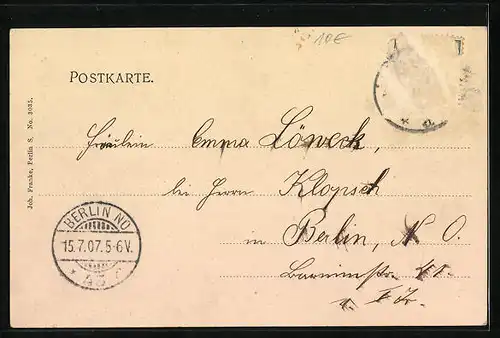 10€
POSTKARTE.
Joh. Franke, Berlin S. No. 3035.
Fräulein Emma Löweck,
bei Herrn Klopsch
in Berlin, N O.
Barnimstr. 41.
BERLIN NO
15.7.07. 5-6V.